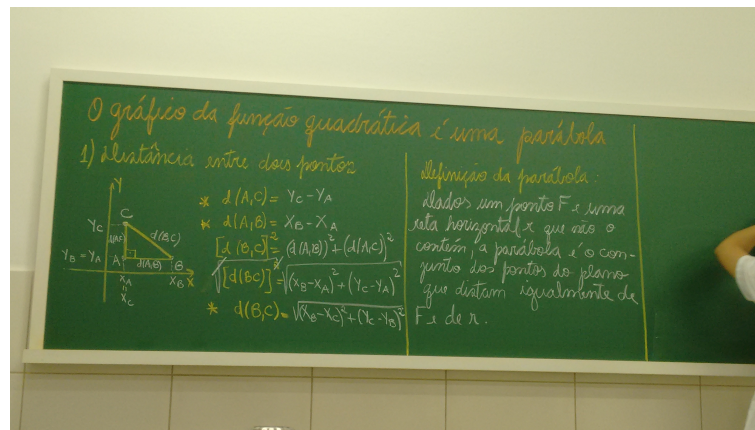 O gráfico da função quadrática é uma parábola
1) distância entre dois pontos
Y
C
Y_C
d(B,C)
Y_B = Y_A
A
d(A,B)
B
X_A
X_B
X
=
X_C
* d(A,C) = Y_C - Y_A
* d(A,B) = X_B - X_A
[d(B,C)]² = (d(A,B))² + (d(A,C))²
√[d(BC)]² = √(X_B-X_A)² + (Y_C-Y_A)²
* d(B,C) = √(X_B-X_C)² + (Y_C-Y_B)²
Definição da parábola:
dados um ponto F e uma
reta horizontal r que não o
contém, a parábola é o con-
junto dos pontos do plano
que distam igualmente de
F e de r.